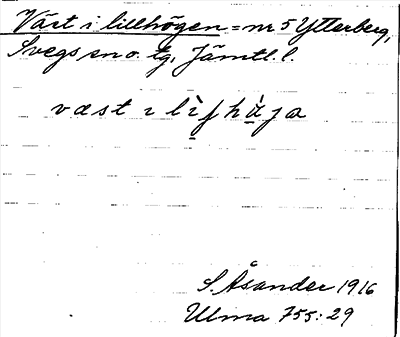 Väst i lillhögen = nr 5 Ytterberg,
Svegs sn o. tg, Jämtl. l.
væst ı lı̀ʃhàja
S. Åsander 1916
Ulma 755:29